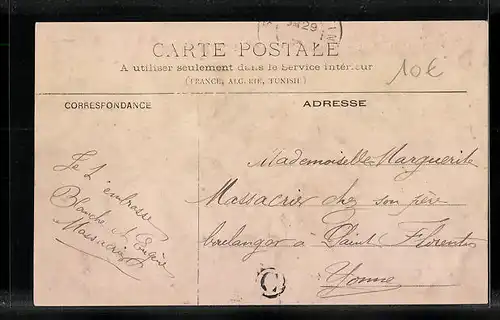 29
CARTE POSTALE
A utiliser seulement dans le Service intérieur
(FRANCE, ALGERIE, TUNISIE)
10€
CORRESPONDANCE
ADRESSE
Je t'embrasse
Blanche et Eugène
Massacrier
Mademoiselle Marguerite
Massacrier chez son père
boulanger à Saint Florentin
Yonne
C